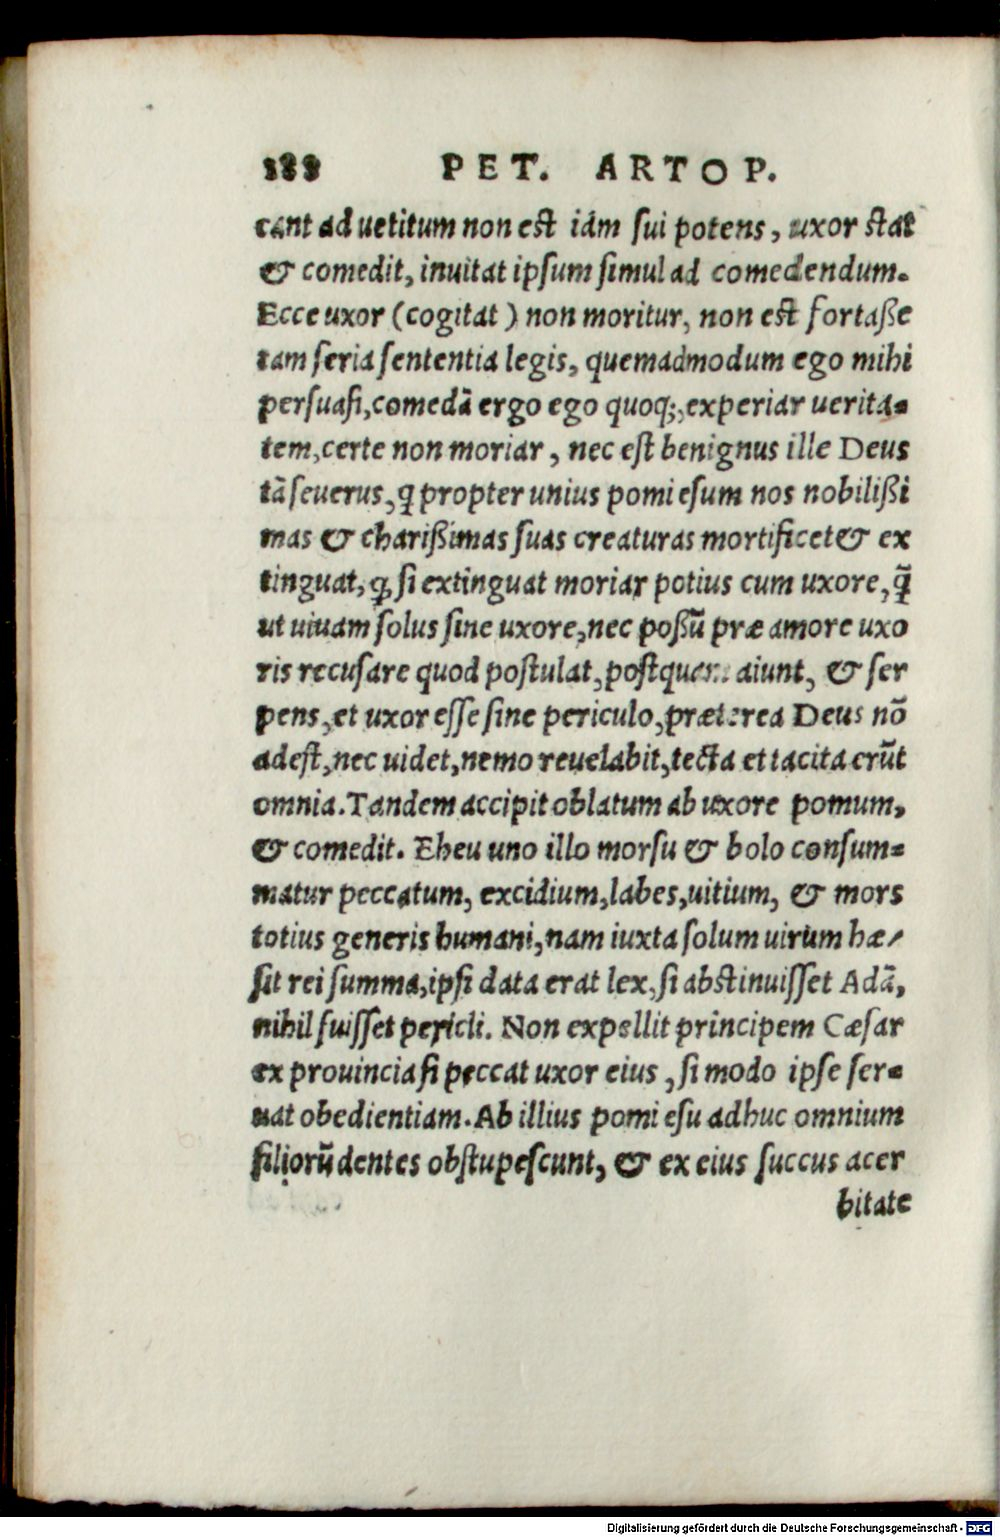 188 PET. ARTOP.
cant ad uetitum non est iam sui potens, uxor stat
& comedit, inuitat ipsum simul ad comedendum.
Ecce uxor (cogitat) non moritur, non est fortaße
tam seria sententia legis, quemadmodum ego mihi
persuasi, comedā ergo ego quoq;, experiar uerita-
tem, certe non moriar, nec est benignus ille Deus
tā seuerus, ꝗ propter unius pomi esum nos nobilißi
mas & charißimas suas creaturas mortificet & ex
tinguat, ꝗ, si extinguat moriar potius cum uxore, ꝗ̃
ut uiuam solus sine uxore, nec poßū præ amore uxo
ris recusare quod postulat, postquam aiunt, & ser
pens, et uxor esse sine periculo, præterea Deus nō
adest, nec uidet, nemo reuelabit, tecta et tacita erūt
omnia. Tandem accipit oblatum ab uxore pomum,
& comedit. Eheu uno illo morsu & bolo consum-
matur peccatum, excidium, labes, uitium, & mors
totius generis humani, nam iuxta solum uirum hæ-
sit rei summa, ipsi data erat lex, si abstinuisset Adā,
nihil fuisset pericli. Non expellit principem Cæsar
ex prouincia si peccat uxor eius, si modo ipse ser-
uat obedientiam. Ab illius pomi esu adhuc omnium
filiorū dentes obstupescunt, & ex eius succus acer
bitate
Digitalisierung gefördert durch die Deutsche Forschungsgemeinschaft - DFG